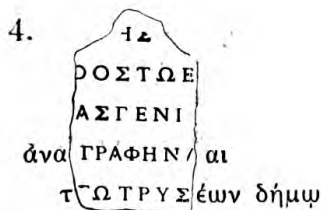 4.
ΟΣΤΩΕ
ΑΣΓΕΝΙ
ἀνα ΓΡΑΦΗΝ αι
τ ΤΩΤΡΥΣ έων δήμῳ